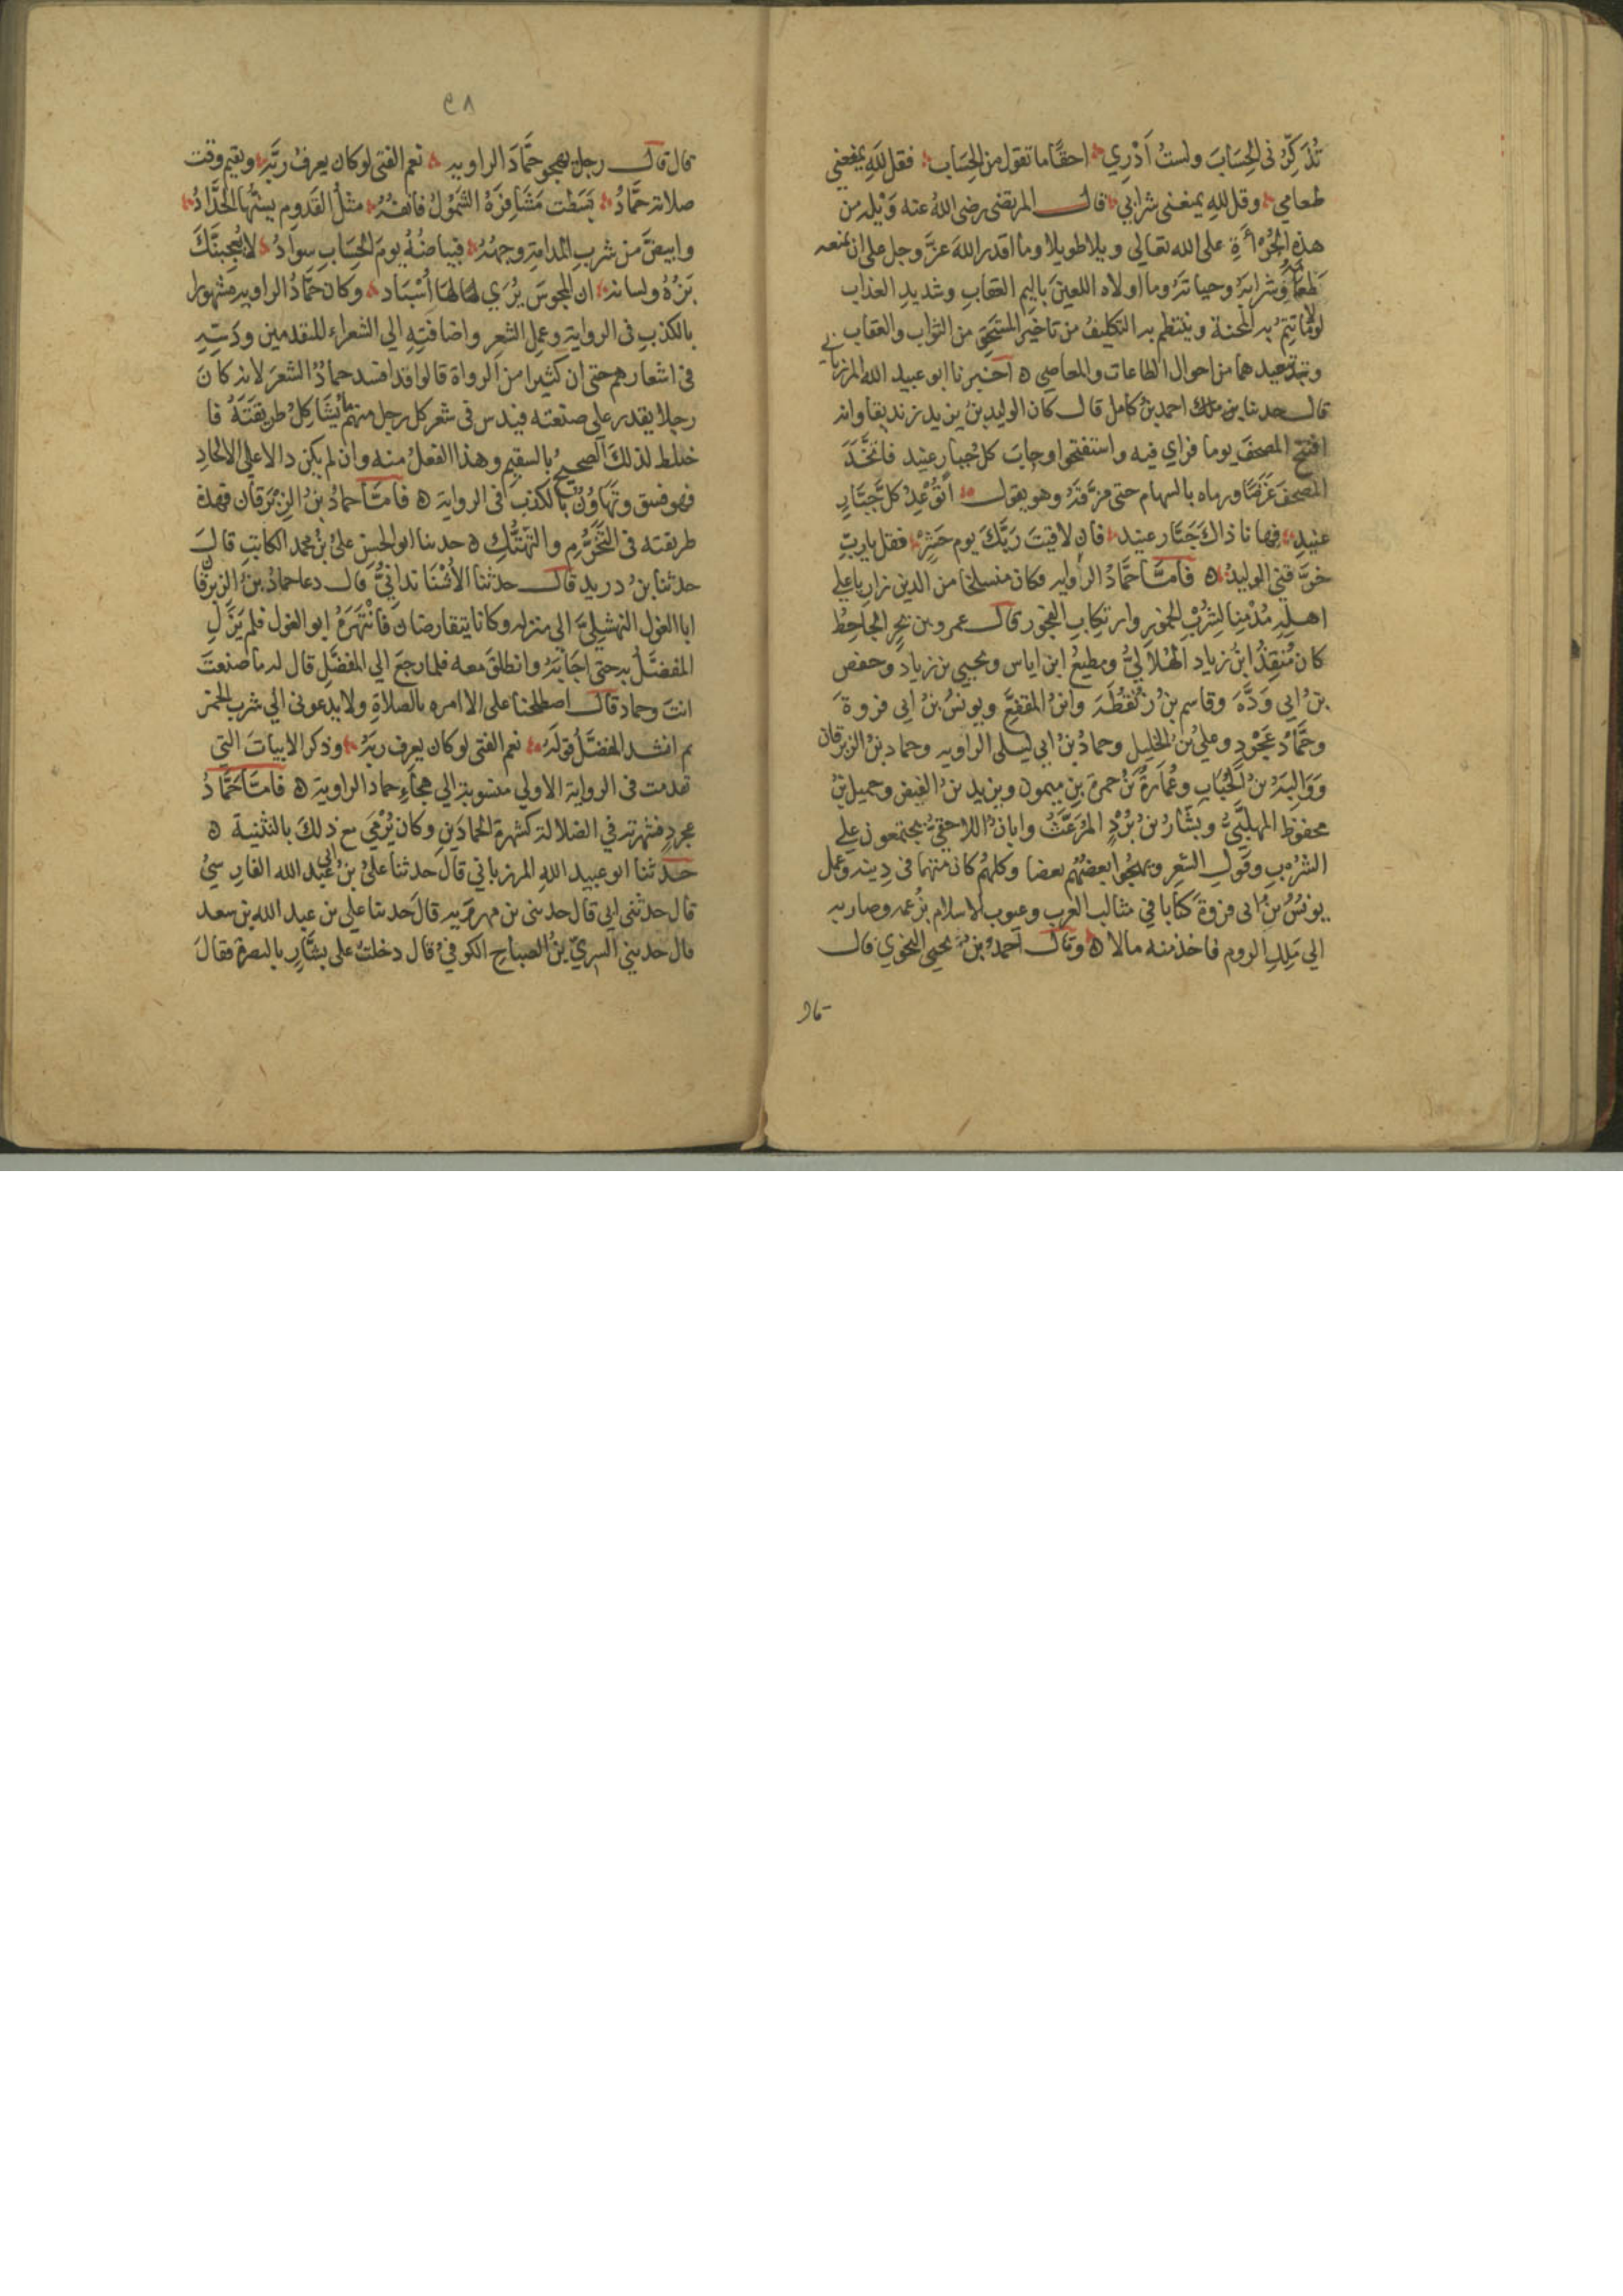 تُذَكِّرُنى الحِسَابَ ولستُ أَدْرِي احقًّا ما تقول من الحِسَاب فقل للهِ يمنعنى
طعامي وقل للهِ يمنعنى شرابي قال المرتضى رضى اللهُ عنه وَيْلَه من
هذه الجُرْأَةِ على الله تعالي ويلا طويلا وما اقدر اللهَ عزَّ وجل على ان يمنعه
طعامَه وشرابَهُ وحياتَهُ وما اولاه اللعينَ باليمِ العقابِ وشديدِ العذاب
لولا ما تتِمُّ به المحنة وينتظم به التكليفُ من تاخيرِ المستحَق من الثواب والعقاب
وتبعيدهما من احوال الطاعات والمعاصي ه اخبرنا ابو عبيد الله المرزبانى
قال حدثنا احمد بنُ كامل قال كان الوليد بنُ يزيد زنديقا وانه
افتتح المصحفَ يوما فراي فيه واستفتحوا وخابَ كلُّ جبارٍ عنيد فاتخَّذَ
المصحفَ غَرَضًا ورماه بالسهام حتى مزَّقَهُ وهو يقول أَتُوعِدُ كلَّ جبَّارٍ
عنيدٍ فها نا ذاكَ جَبَّار عنيد فان لاقيتَ رَبَّكَ يوم حَشرٍ فقل يا ربّ
خرَّقنى الوليدُ ه فامَّا حَمَّادُ الراويه فكان منسلخا من الدين زاريا على
اهلِهِ مُدْمِنا لشُرْبِ الخمورِ وارتكابِ الفجور قال عمرو بن بحرٍ الجاحِظُ
كان مُنقِذُ ابنُ زياد الهلاليُّ ومطيعُ ابن اياس ويحيي بن زياد وحفص
بنُ ابي وَدَّهَ وقاسم بنُ زنقطَه وابنُ المقفعَّ ويونسُ بنُ ابى فروةَ
وحمَّادُ عَجْرد وعليُّ بنُ الخليل وحمادُ بنُ ابي ليلى الراويه وحماد بنُ الزبرقان
ووَالبَه بنُ الحُبَابِ وعُمَارةُ بنُ حمزة بن ميمون ويزيد بنُ الفيض وجميل بنُ
محفوظ المهلَّبيُّ وبشَّارُ بنُ بُرْدٍ المُرَعَّثُ وابانُ اللاحقيُّ يجتمعون على
الشرْبِ وقولِ الشعر ويهجُو بعضُهُم بعضا وكلهُم كان متهما فى دِينه وعمل
يونسُ بنُ ابى فروةَ كتابا في مثالب العرب وعيوب الاسلام بزعمه وصار به
الي مَلِكِ الروم فاخذ منه مالا ه وقال احمدُ بنُ يحيى النحوي قال
قال
٩٨
قال قال رجل يهجو حمَّادَ الراويه نعم الفتى لو كان يعرفُ ربَّه ويقيم وقت
صلاته حمَّادُ بَسَطت مَشَافِرَهُ الشَّمُولُ فانفهُ مثلُ القَدُومِ يسنُّها الحدَّادُ
وابيضَّ من شربِ المدامةِ وجهُهُ فبياضُهُ يومَ الحِسَابِ سوادُ لا يُعجِبنَّكَ
بَزُّهُ ولسانه ان المجوسَ يُرَي لها اَسْبَاد وكان حمَّادُ الراويه مشهورا
بالكذبِ فى الرواية وعملِ الشعرِ واضافتِهِ الي الشعراء المتقدمين ودَسِّهِ
فى اشعارهم حتى ان كثيرا من الرواة قالوا قد افسد حمادُ الشعرَ لانه كانَ
رجلا يقدر على صنعته فيدس فى شعر كل رجل منهم ما يُشَاكِلُ طريقَتَهُ فا
ختلط لذلكَ الصحيحُ بالسقيمِ وهذا الفعلُ منه وان لم يكن دالا على الالحادِ
فهو فسق وتهَاوُنُ بالكذب فى الرواية ه فامَّا حمادُ بنُ الزِبْرَقان فهذه
طريقته فى التخَرُّمِ والتهَتُّكِ ه حدثنا ابو الحسن عليُّ بنُ محمد الكاتبِ قالَ
حدثنا بنُ دريدٍ قال حدثنا الأُشْنَاندانيُّ قال دعا حمادُ بنُ الزبرقان
ابا الغول النهشليَّ الي منزله وكانا يتقارضان فانْتَهَرَهُ ابو الغول فلم يَزَلِ
المفضَّلُ به حتى اجَابَهُ وانطلقَ معه فلما رجعَ الي المفضَّلِ قال له ما صنعتَ
انتَ وحماد قال اصطلحنا على الا امره بالصلاةِ ولا يدعونى الي شرب الخمر
ثم انشد المفضَّلُ قولَهُ نعم الفتى لو كان يعرف ربَهُ وذكر الابياتَ التي
تقدمت فى الرواية الاولي منسوبة الي هجاءِ حماد الراوية ه فامَّا حَمَّادُ
عجردٍ فشهرته في الضلالة كشهرة الحمادَينِ وكان يُرْمَي مع ذلكَ بالتثنية ه
حدثنا ابو عبيد اللهِ المرزباني قال حدثنا عليُّ بنُ عبد الله الفارسيُّ
قال حدثنى ابي قال حدثنى بن مهرويه قالَ حدثنا علي بن عبد الله بن سعد
قال حدثنى السريّ بنُ الصباحِ الكوفيُّ قال دخلتُ على بشَّارٍ بالبصرة فقالَ